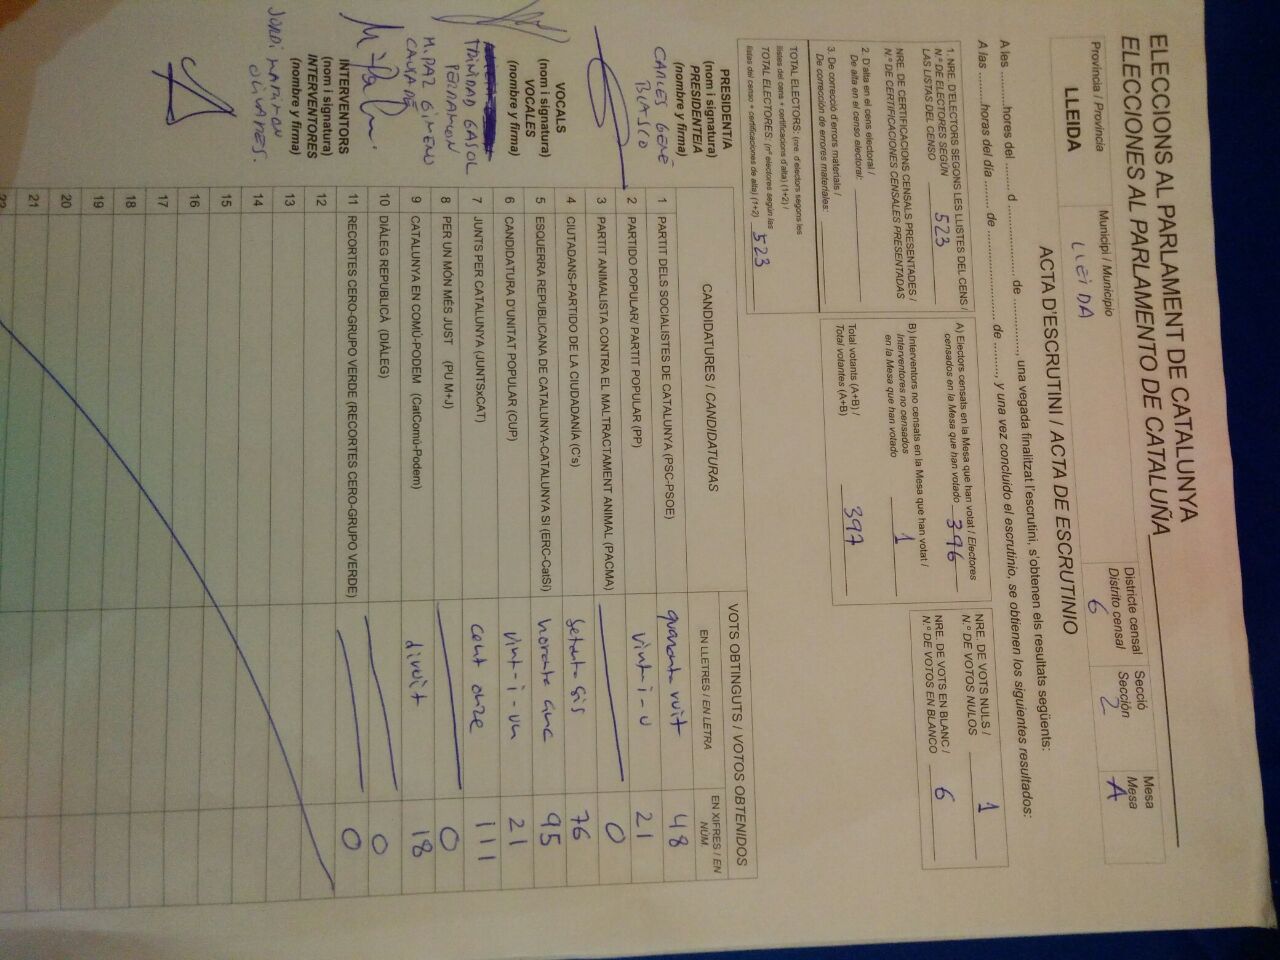 ELECCIONS AL PARLAMENT DE CATALUNYA
ELECCIONES AL PARLAMENTO DE CATALUÑA
Província / Provincia
LLEIDA
Municipi / Municipio
LLEIDA
Districte censal
Distrito censal
6
Secció
Sección
2
Mesa
Mesa
A
ACTA D'ESCRUTINI / ACTA DE ESCRUTINIO
A les hores del d de , una vegada finalitzat l'escrutini, s'obtenen els resultats següents:
A las horas del día de de , y una vez concluido el escrutinio, se obtienen los siguientes resultados:
1. NRE. D'ELECTORS SEGONS LES LLISTES DEL CENS /
N.º DE ELECTORES SEGÚN
LAS LISTAS DEL CENSO 523
NRE. DE CERTIFICACIONS CENSALS PRESENTADES /
N.º DE CERTIFICACIONES CENSALES PRESENTADAS
2. D'alta en el cens electoral /
De alta en el censo electoral:
3. De correcció d'errors materials /
De corrección de errores materiales:
TOTAL ELECTORS: (nre. d'electors segons les
llistes del cens + certificacions d'alta) (1+2) /
TOTAL ELECTORES: (nº electores según las
listas del censo + certificaciones de alta) (1+2) 523
A) Electors censats en la Mesa que han votat / Electores
censados en la Mesa que han votado 396
B) Interventors no censats en la Mesa que han votat /
Interventores no censados
en la Mesa que han votado 1
Total votants (A+B) /
Total votantes (A+B) 397
NRE. DE VOTS NULS /
N.º DE VOTOS NULOS 1
NRE. DE VOTS EN BLANC /
N.º DE VOTOS EN BLANCO 6
PRESIDENT/A
(nom i signatura)
PRESIDENTE/A
(nombre y firma)
CARLES GENE
BLASCO
VOCALS
(nom i signatura)
VOCALES
(nombre y firma)
TRINIDAD GASOL
M. PAZ GIMENO
INTERVENTORS
(nom i signatura)
INTERVENTORES
(nombre y firma)
JORDI
OLIVARES
CANDIDATURES / CANDIDATURAS
VOTS OBTINGUTS / VOTOS OBTENIDOS
EN LLETRES / EN LETRA
EN XIFRES / EN NÚM.
1 PARTIT DELS SOCIALISTES DE CATALUNYA (PSC-PSOE) quaranta vuit 48
2 PARTIDO POPULAR/ PARTIT POPULAR (PP) vint-i-u 21
3 PARTIT ANIMALISTA CONTRA EL MALTRACTAMENT ANIMAL (PACMA) 0
4 CIUTADANS-PARTIDO DE LA CIUDADANÍA (C's) setanta sis 76
5 ESQUERRA REPUBLICANA DE CATALUNYA-CATALUNYA SÍ (ERC-CatSí) noranta cinc 95
6 CANDIDATURA D'UNITAT POPULAR (CUP) vint-i-un 21
7 JUNTS PER CATALUNYA (JUNTSxCAT) cent onze 111
8 PER UN MÓN MÉS JUST (PUM+J) 0
9 CATALUNYA EN COMÚ-PODEM (CatComú-Podem) divuit 18
10 DIÀLEG REPUBLICÀ (DIÀLEG) 0
11 RECORTES CERO-GRUPO VERDE (RECORTES CERO-GRUPO VERDE) 0
12
13
14
15
16
17
18
19
20
21
22